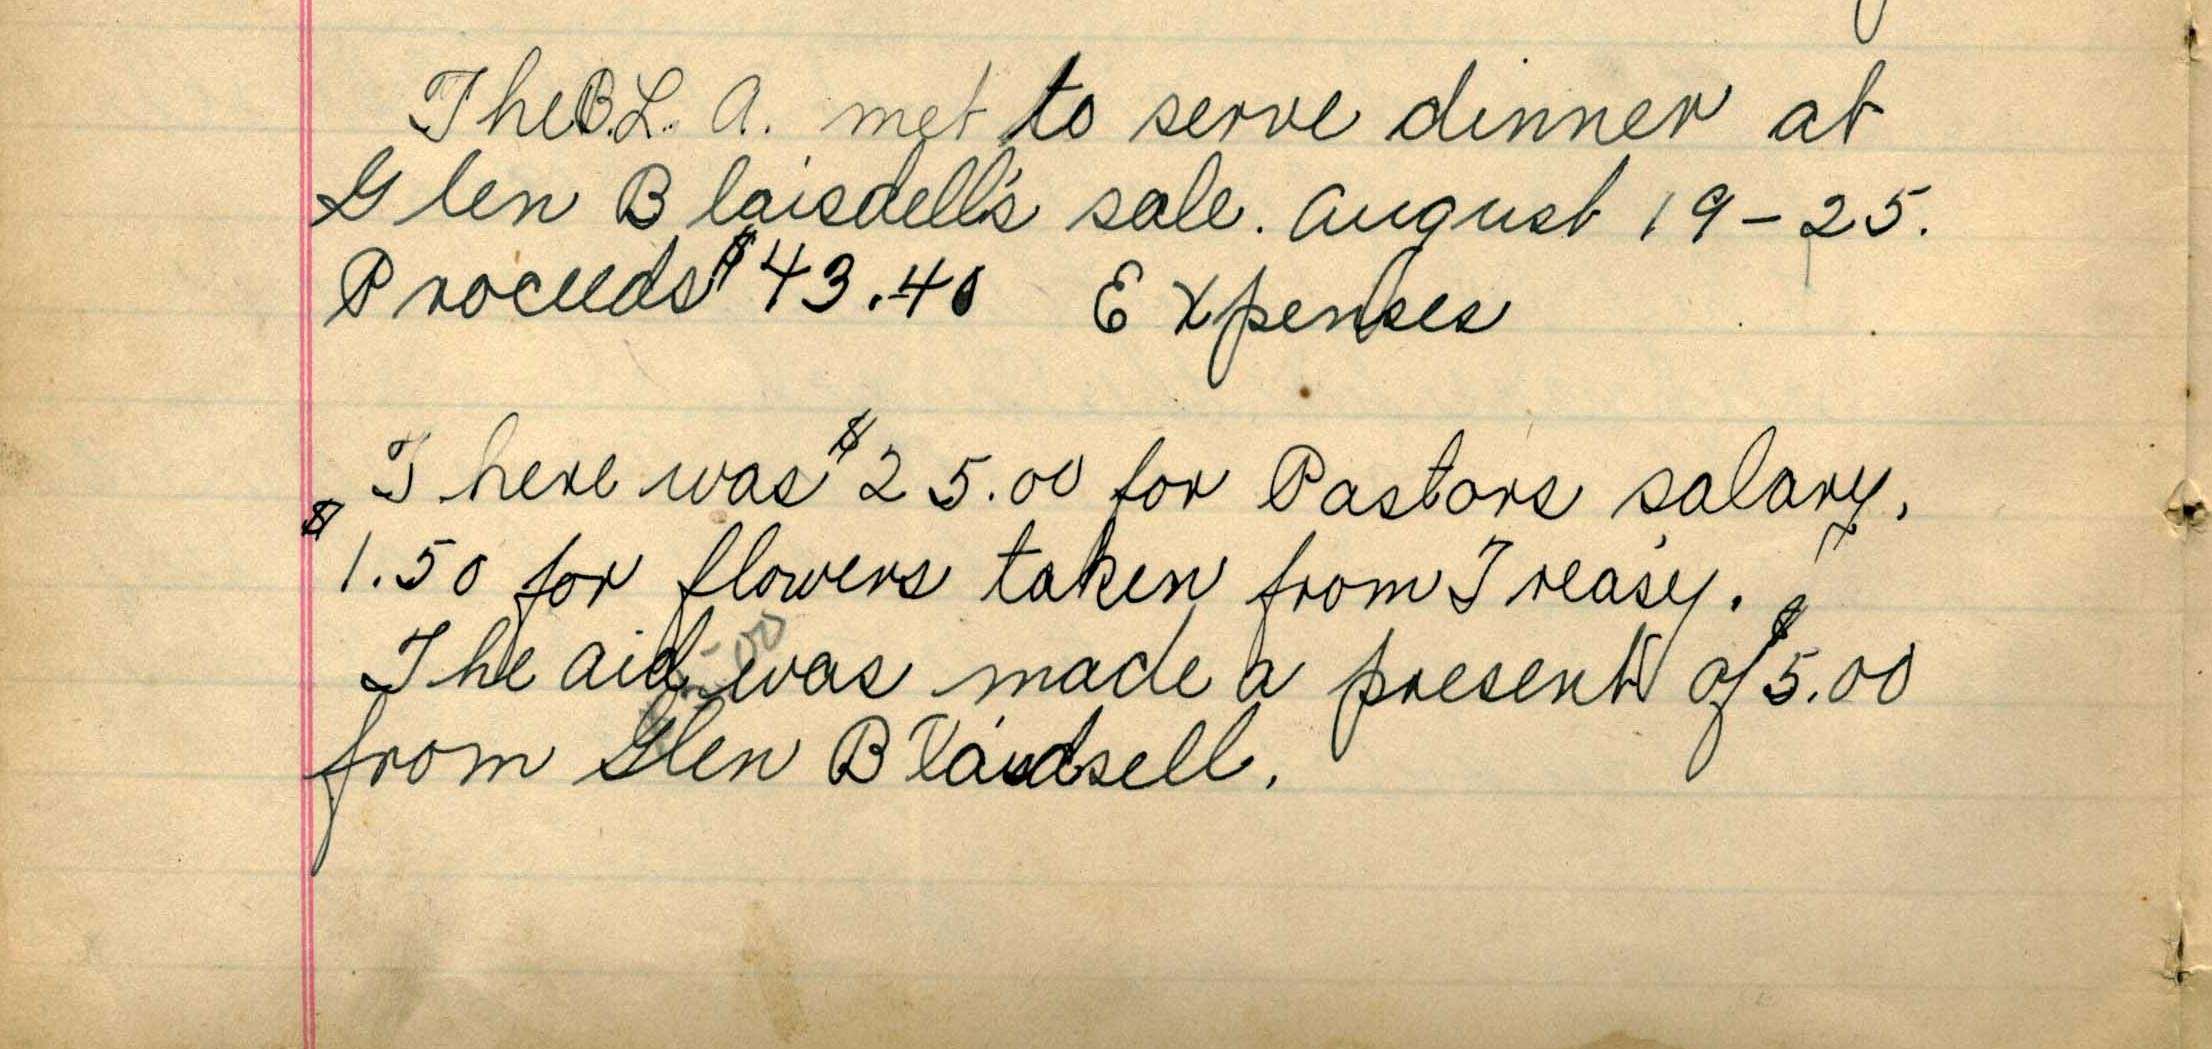 The B.L. A. met to serve dinner at
Glen Blaisdell's sale. August 19-25.
Proceeds $43.40 Expenses
There was $25.00 for Pastors salary,
$1.50 for flowers taken from Treasy.
The aid was made a present of $5.00
from Glen Blaidsell.